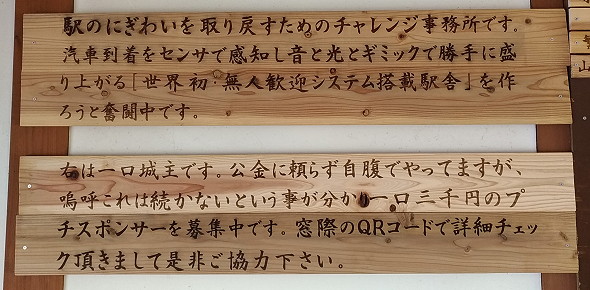 駅のにぎわいを取り戻すためのチャレンジ事務所です。
汽車到着をセンサで感知し音と光とギミックで勝手に盛
り上がる「世界初・無人歓迎システム搭載駅舎」を作
ろうと奮闘中です。
右は一口城主です。公金に頼らず自腹でやってますが、
嗚呼これは続かないという事が分かり一口三千円のプ
チスポンサーを募集中です。窓際のQRコードで詳細チェッ
ク頂きまして是非ご協力下さい。